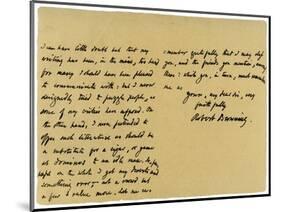 I can have little doubt but that my
writing has been, in the main, too hard
for many I should have been pleased
to communicate with: but I never
designedly tried to puzzle people, as
some of my critics have supposed. On
the other hand, I never pretended to
offer such literature as should be
a substitute for a cigar, or game
at dominos to an idle man. So,
perhaps, on the whole I get my deserts and
something over – not a crowd but
a few I value more. Let me
remember gratefully that I may class
you, and the friends you mention, among
these: while you, in turn, must remember
me as
yours, my dear sir, very
faithfully
Robert Browning.